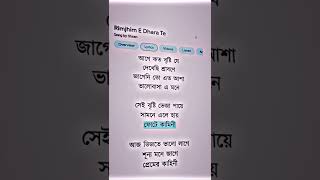 Rimjhim E Dhara Te
Song by Shaan
Overview Lyrics Videos Listen
আগে কত বৃষ্টি যে
দেখেছি শ্রাবণে
জাগেনি তো এত আশা
ভালোবাসা এ মনে
সেই বৃষ্টি ভেজা পায়ে
সামনে এলে হায়
ফোটে কামিনী
আজ ভিজতে ভালো লাগে
শূন্য মনে জাগে
প্রেমের কাহিনী